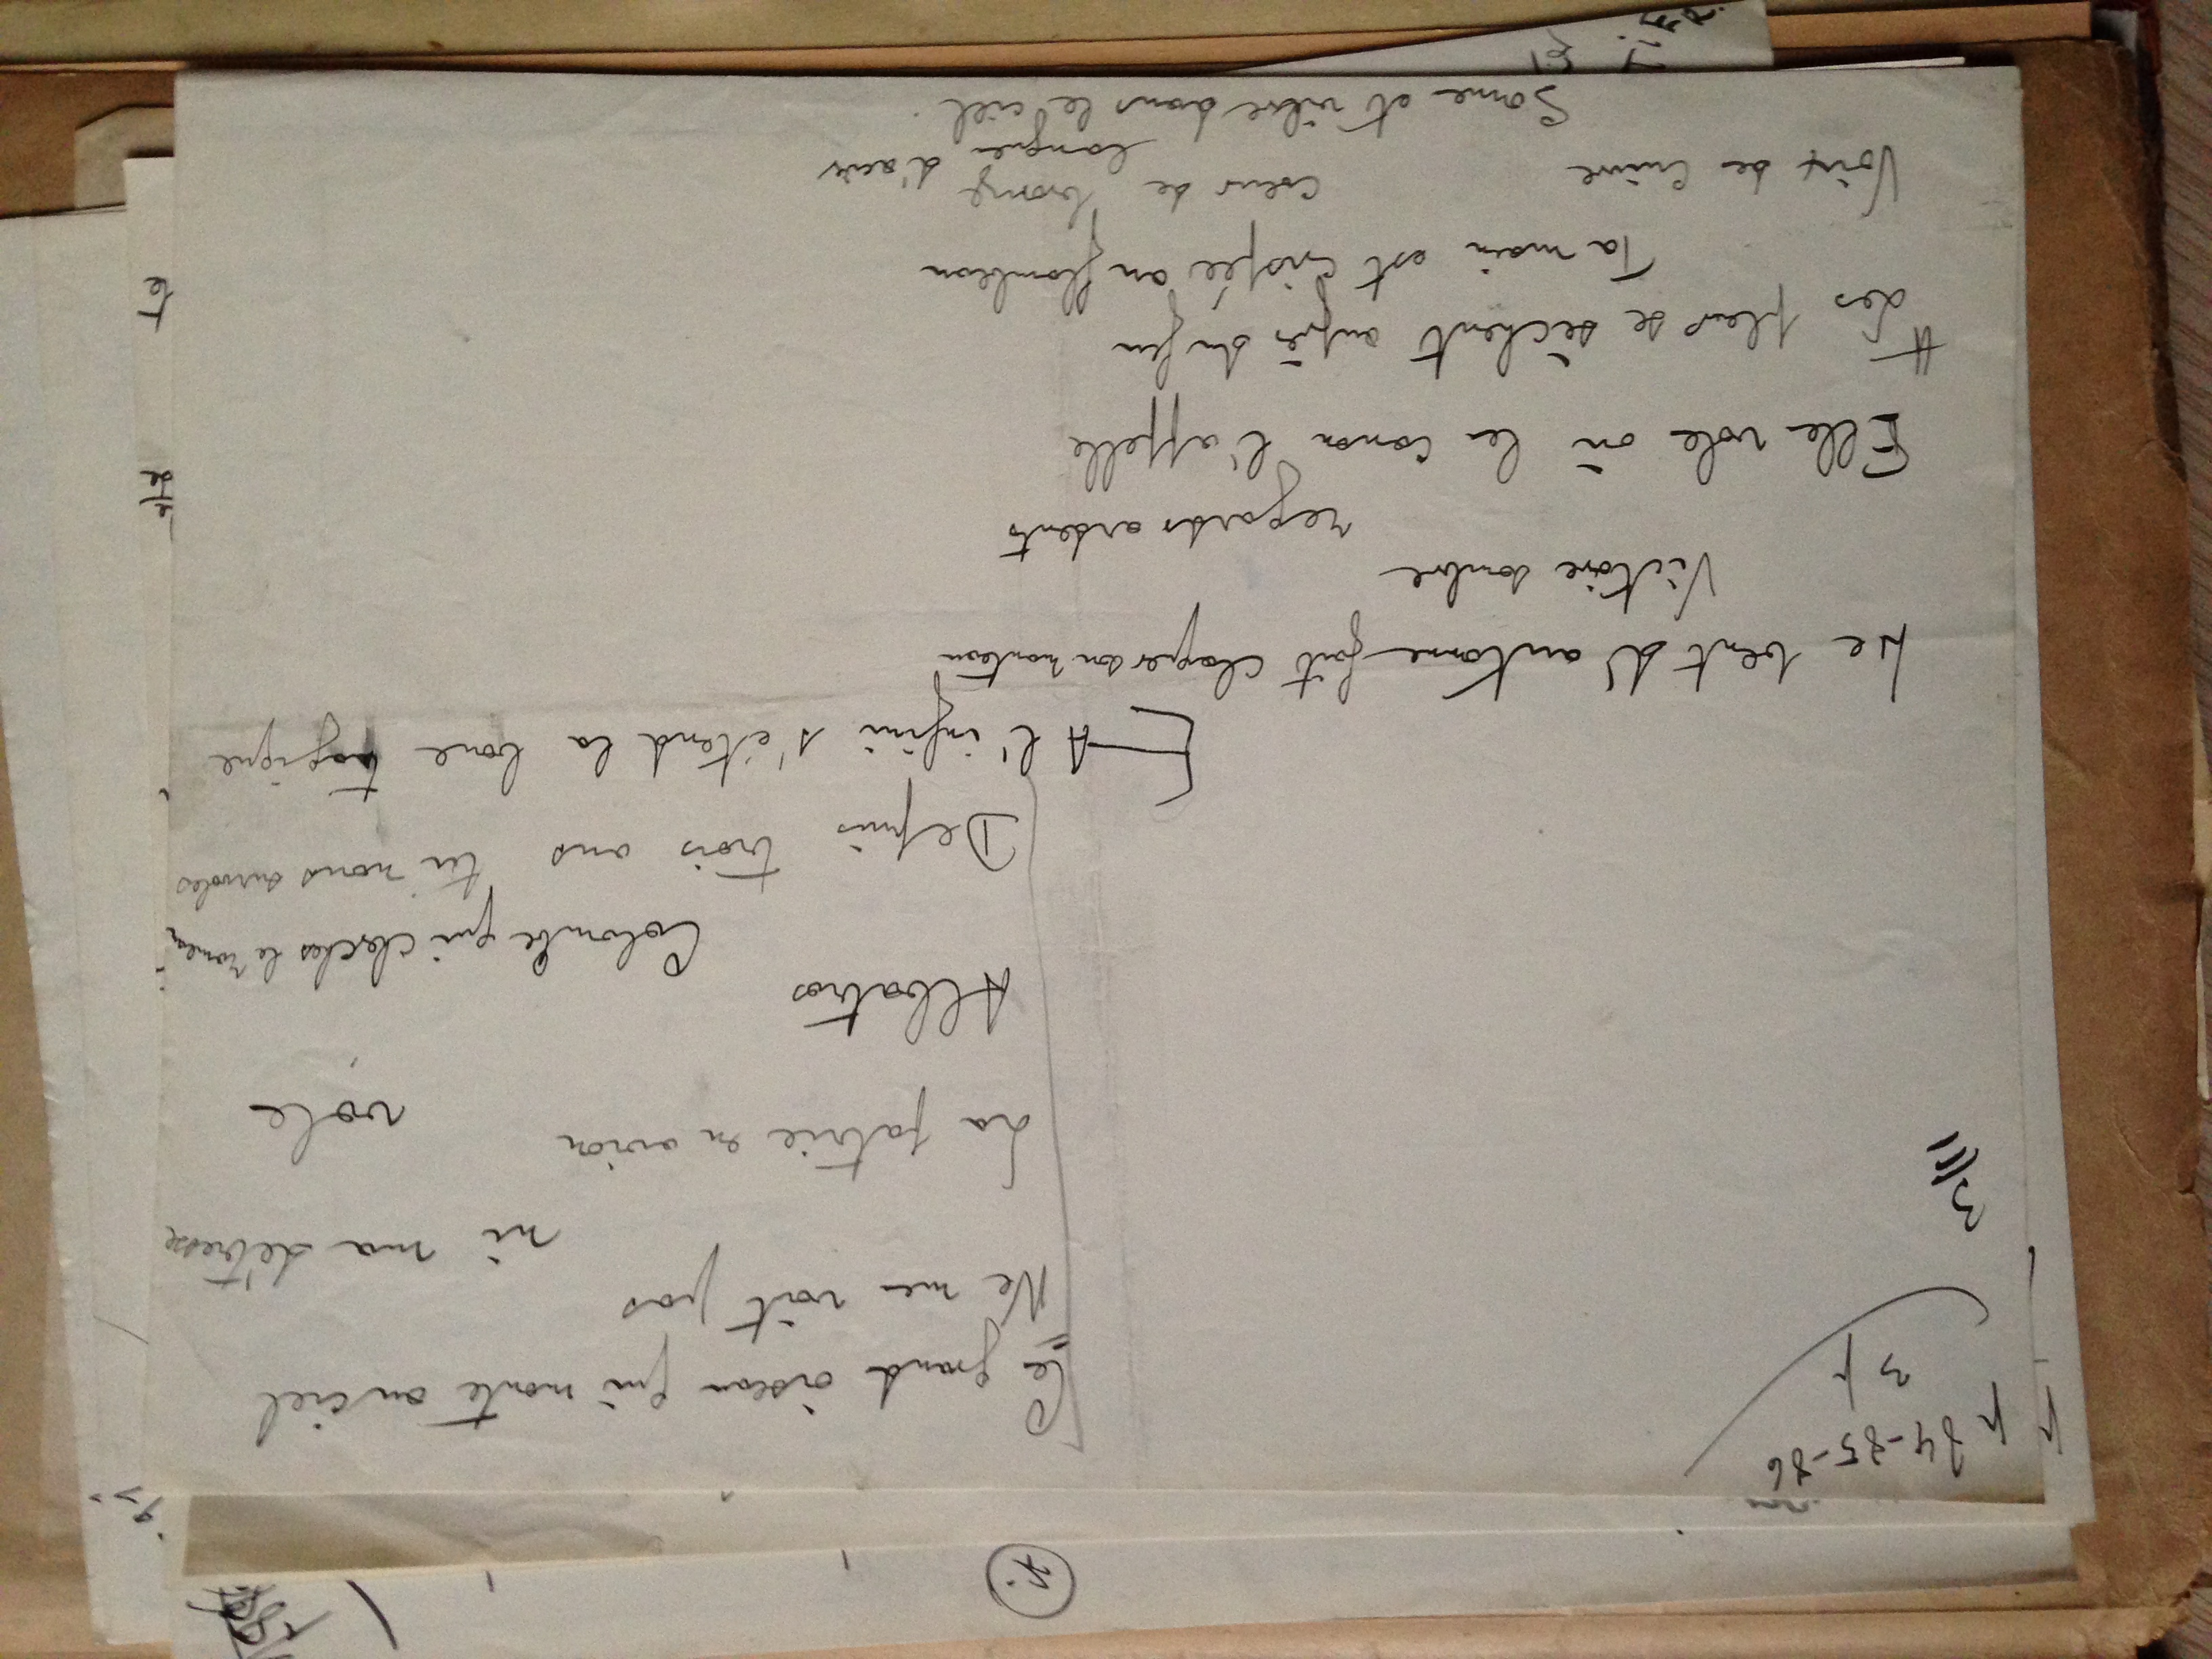 p 84-85-86
3 p
3
Ce grand oiseau qui monte au ciel
Ne me voit pas
ni ma détresse
La patrie en avion
vole
Albatros
Colombe qui cherches le rameau
Depuis trois ans tu nous survoles
A l'infini s'étend la boue tragique
Le vent d'automne fait claquer son manteau
Victoire sombre
regards ardents
Elle vole où le canon l'appelle
Les pleurs se sèchent auprès du feu
Ta main est crispée au flambeau
Voix de cuivre
coeur de bronze
langue d'acier
Sonne et vibre dans le ciel.
e
de
te